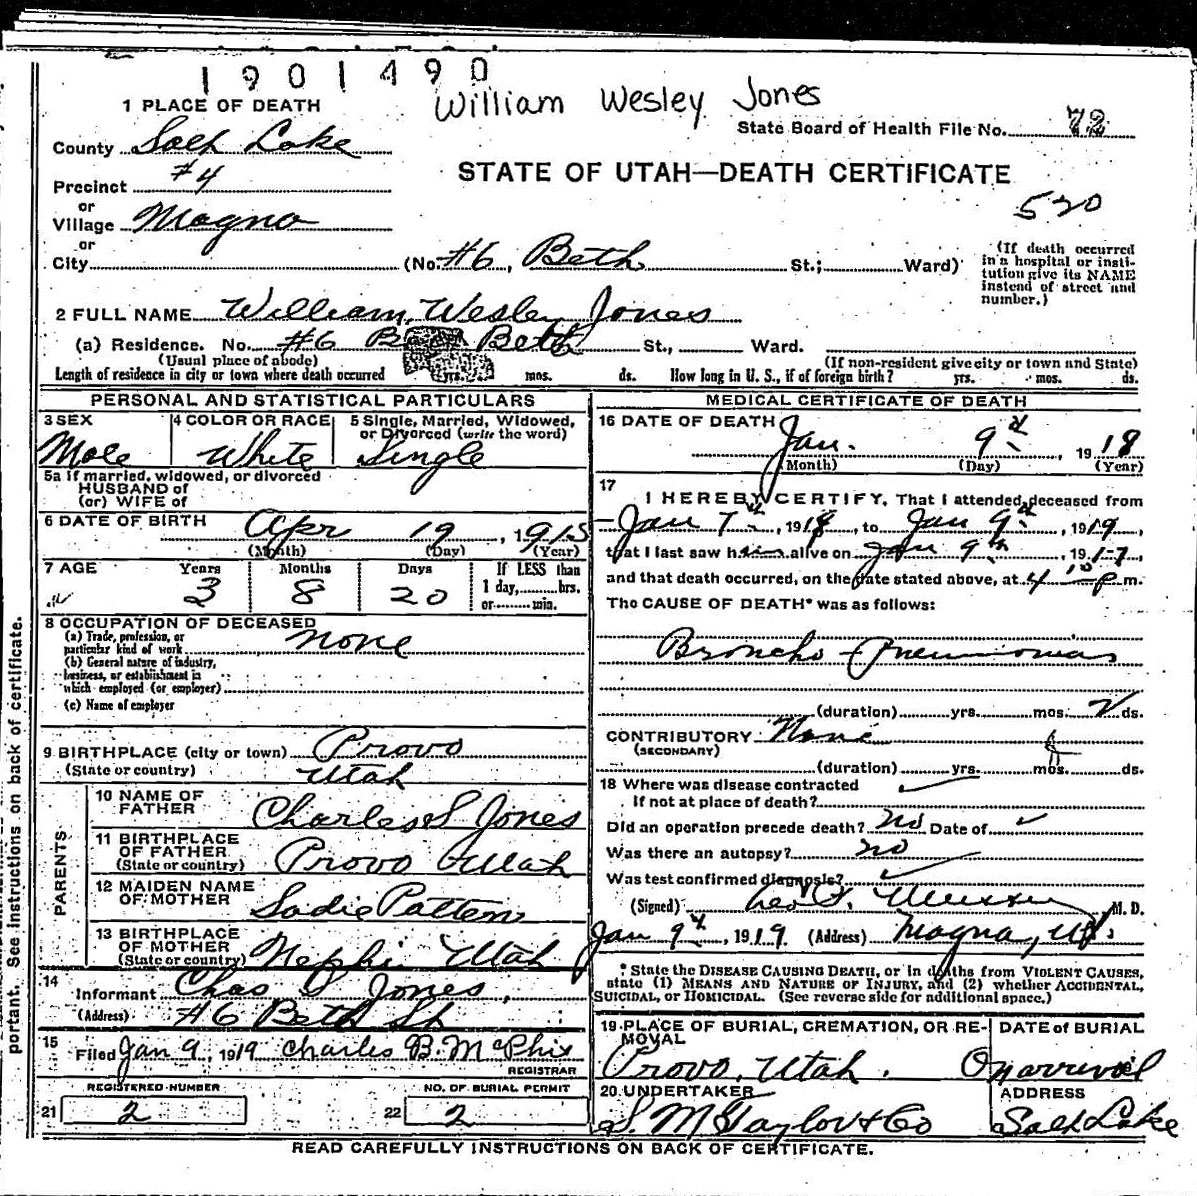 1901490
William Wesley Jones
1 PLACE OF DEATH
State Board of Health File No. 72
County Salt Lake
STATE OF UTAH—DEATH CERTIFICATE
Precinct #4
520
or
Village Magna
or
City (No. #6, Beth St.; Ward)
(If death occurred
in a hospital or insti-
tution give its NAME
instead of street and
number.)
2 FULL NAME William Wesley Jones
(a) Residence. No. #6 Beth St., Ward.
(Usual place of abode) (If non-resident give city or town and State)
Length of residence in city or town where death occurred yrs. mos. ds. How long in U. S., if of foreign birth? yrs. mos. ds.
PERSONAL AND STATISTICAL PARTICULARS
3 SEX 4 COLOR OR RACE 5 Single, Married, Widowed,
or Divorced (write the word)
Male White Single
5a If married, widowed, or divorced
HUSBAND of
(or) WIFE of
6 DATE OF BIRTH Apr 19, 1915
(Month) (Day) (Year)
7 AGE Years Months Days If LESS than
1 day, hrs.
or min.
3 8 20
8 OCCUPATION OF DECEASED
(a) Trade, profession, or
particular kind of work none
(b) General nature of industry,
business, or establishment in
which employed (or employer)
(c) Name of employer
9 BIRTHPLACE (city or town) Provo
(State or country) Utah
PARENTS
10 NAME OF
FATHER Charles S Jones
11 BIRTHPLACE
OF FATHER
(State or country) Provo Utah
12 MAIDEN NAME
OF MOTHER Sadie Patten
13 BIRTHPLACE
OF MOTHER
(State or country) Nephi Utah
14
Informant Chas Jones,
(Address) #6 Beth St
15
Filed Jan 9, 1919 Charles B. McPhie
REGISTRAR
REGISTERED NUMBER NO. OF BURIAL PERMIT
21 2 22 2
MEDICAL CERTIFICATE OF DEATH
16 DATE OF DEATH
Jan. 9, 1918
(Month) (Day) (Year)
17
I HEREBY CERTIFY, That I attended deceased from
Jan 7th, 1918, to Jan 9th, 1919,
that I last saw him alive on Jan 9th, 191
and that death occurred, on the date stated above, at 4 p m.
The CAUSE OF DEATH* was as follows:
Broncho-Pneumonia
(duration) yrs. mos. 2 ds.
CONTRIBUTORY None
(SECONDARY)
(duration) yrs. mos. ds.
18 Where was disease contracted
If not at place of death?
Did an operation precede death? No Date of
Was there an autopsy? no
Was test confirmed diagnosis?
(Signed) Geo F. M. D.
Jan 9th, 1919 (Address) Magna, Ut.
* State the DISEASE CAUSING DEATH, or in deaths from VIOLENT CAUSES,
state (1) MEANS AND NATURE OF INJURY, and (2) whether ACCIDENTAL,
SUICIDAL, or HOMICIDAL. (See reverse side for additional space.)
19 PLACE OF BURIAL, CREMATION, OR RE-
MOVAL
DATE of BURIAL
Provo, Utah. On arrival
20 UNDERTAKER ADDRESS
S. M Taylor & Co Salt Lake
READ CAREFULLY INSTRUCTIONS ON BACK OF CERTIFICATE.
portant. See instructions on back of certificate.